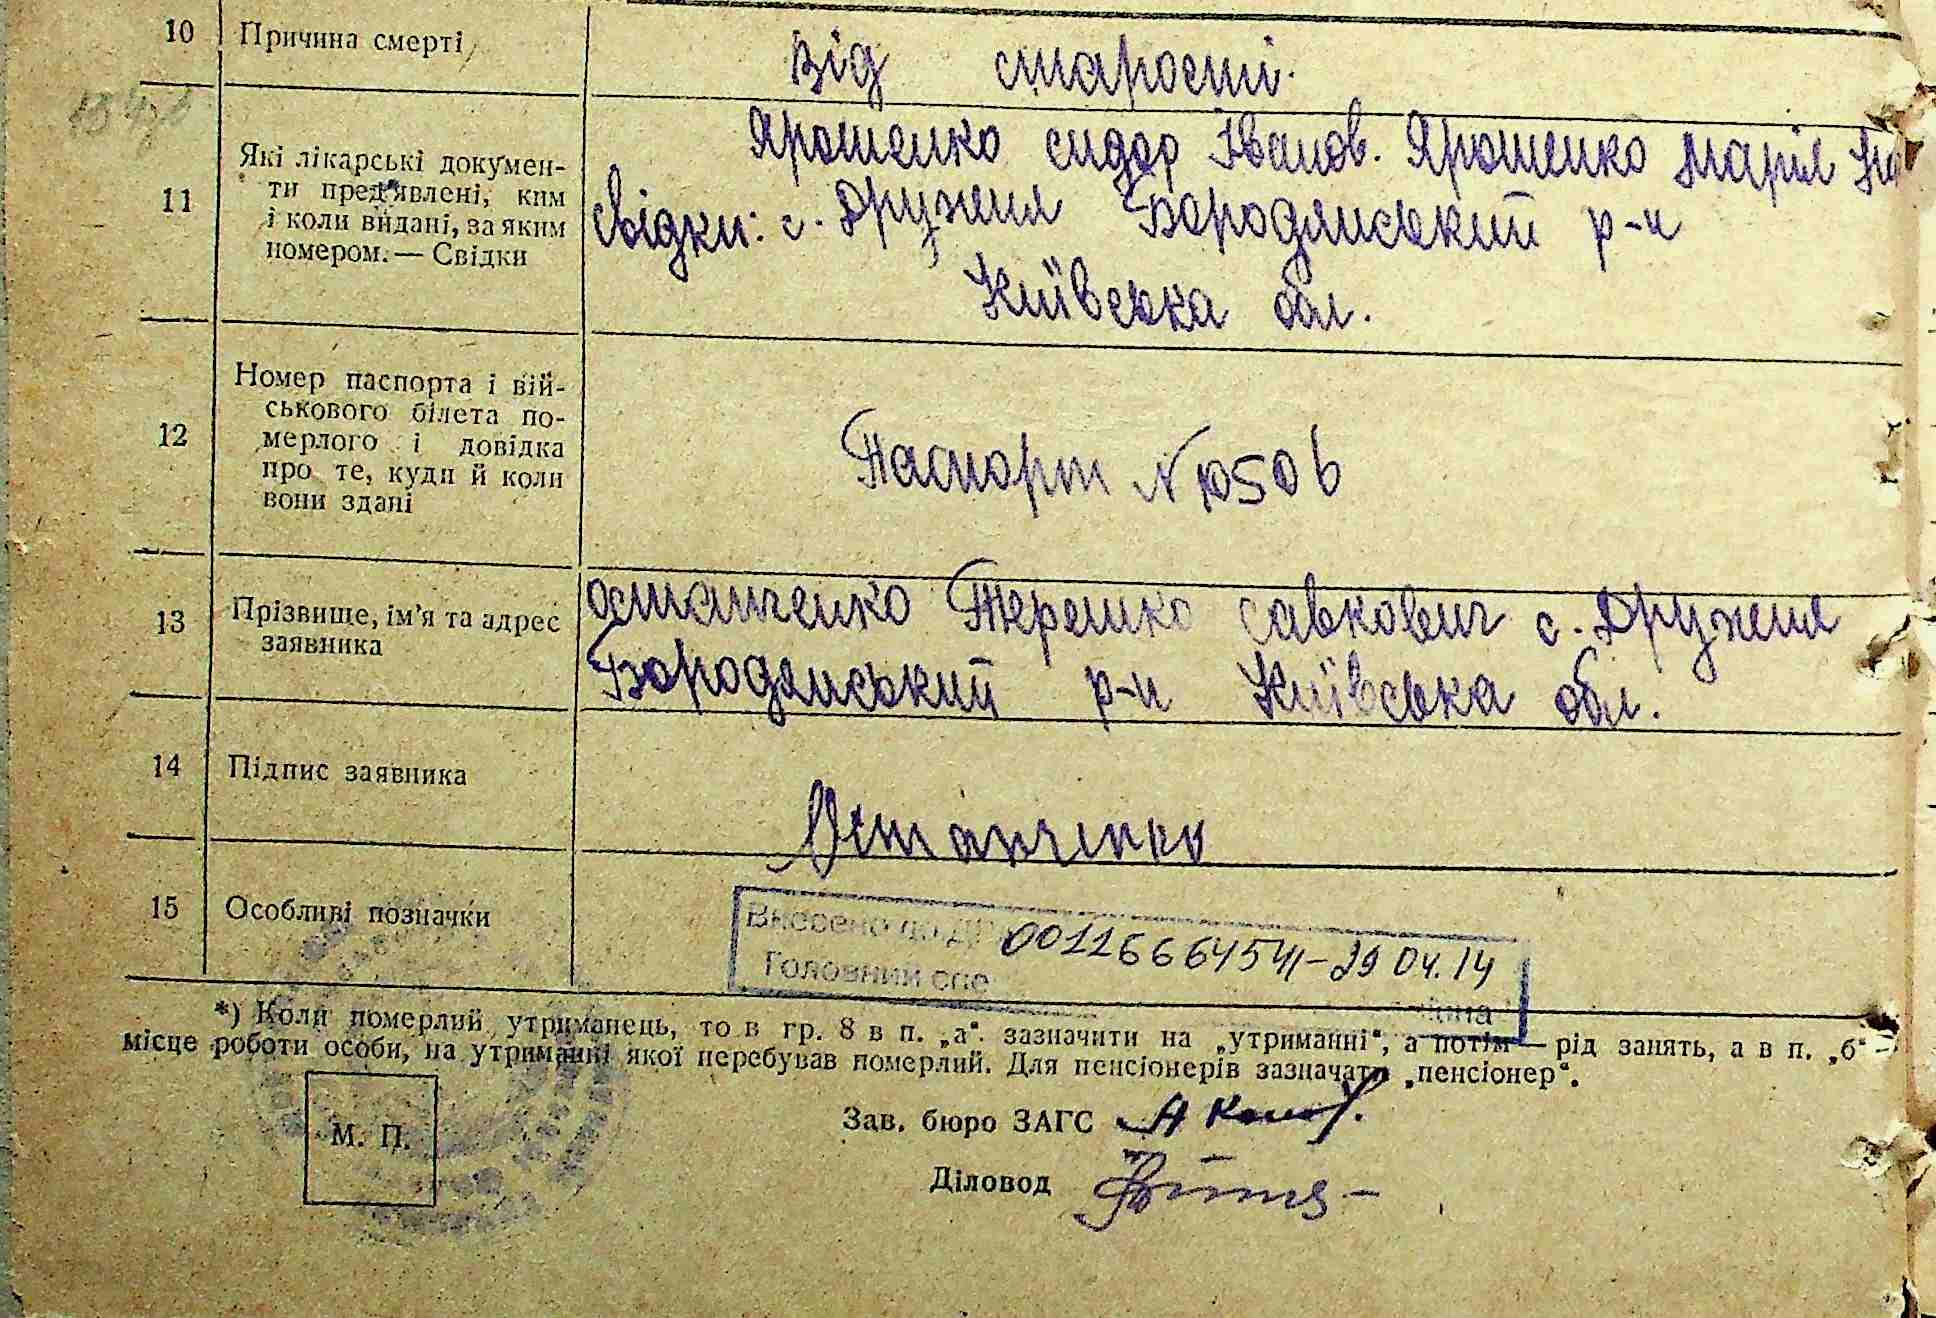 10 Причина смерті
від старости.
11 Які лікарські докумен-
ти пред'явлені, ким
і коли видані, за яким
номером. — Свідки
Ярошенко сидор Іванов. Ярошенко Марія
свідки: с. Дружня Бородянський р-н
Київська обл.
12 Номер паспорта і вій-
ськового білета по-
мерлого і довідка
про те, куди й коли
вони здані
Паспорт N 10506
13 Прізвище, ім'я та адрес
заявника
Остапченко Терешко савкович с. Дружня
Бородянський р-н Київська обл.
14 Підпис заявника
Остапченко
15 Особливі позначки
Внесено до
00116664541-29 04.14
Головний спе
*) Коли померлий утриманець, то в гр. 8 в п. „а“. зазначити на „утриманні“, а потім — рід занять, а в п. „б“ -
місце роботи особи, на утриманні якої перебував померлий. Для пенсіонерів зазначати „пенсіонер“.
М. П.
Зав. бюро ЗАГС
Діловод